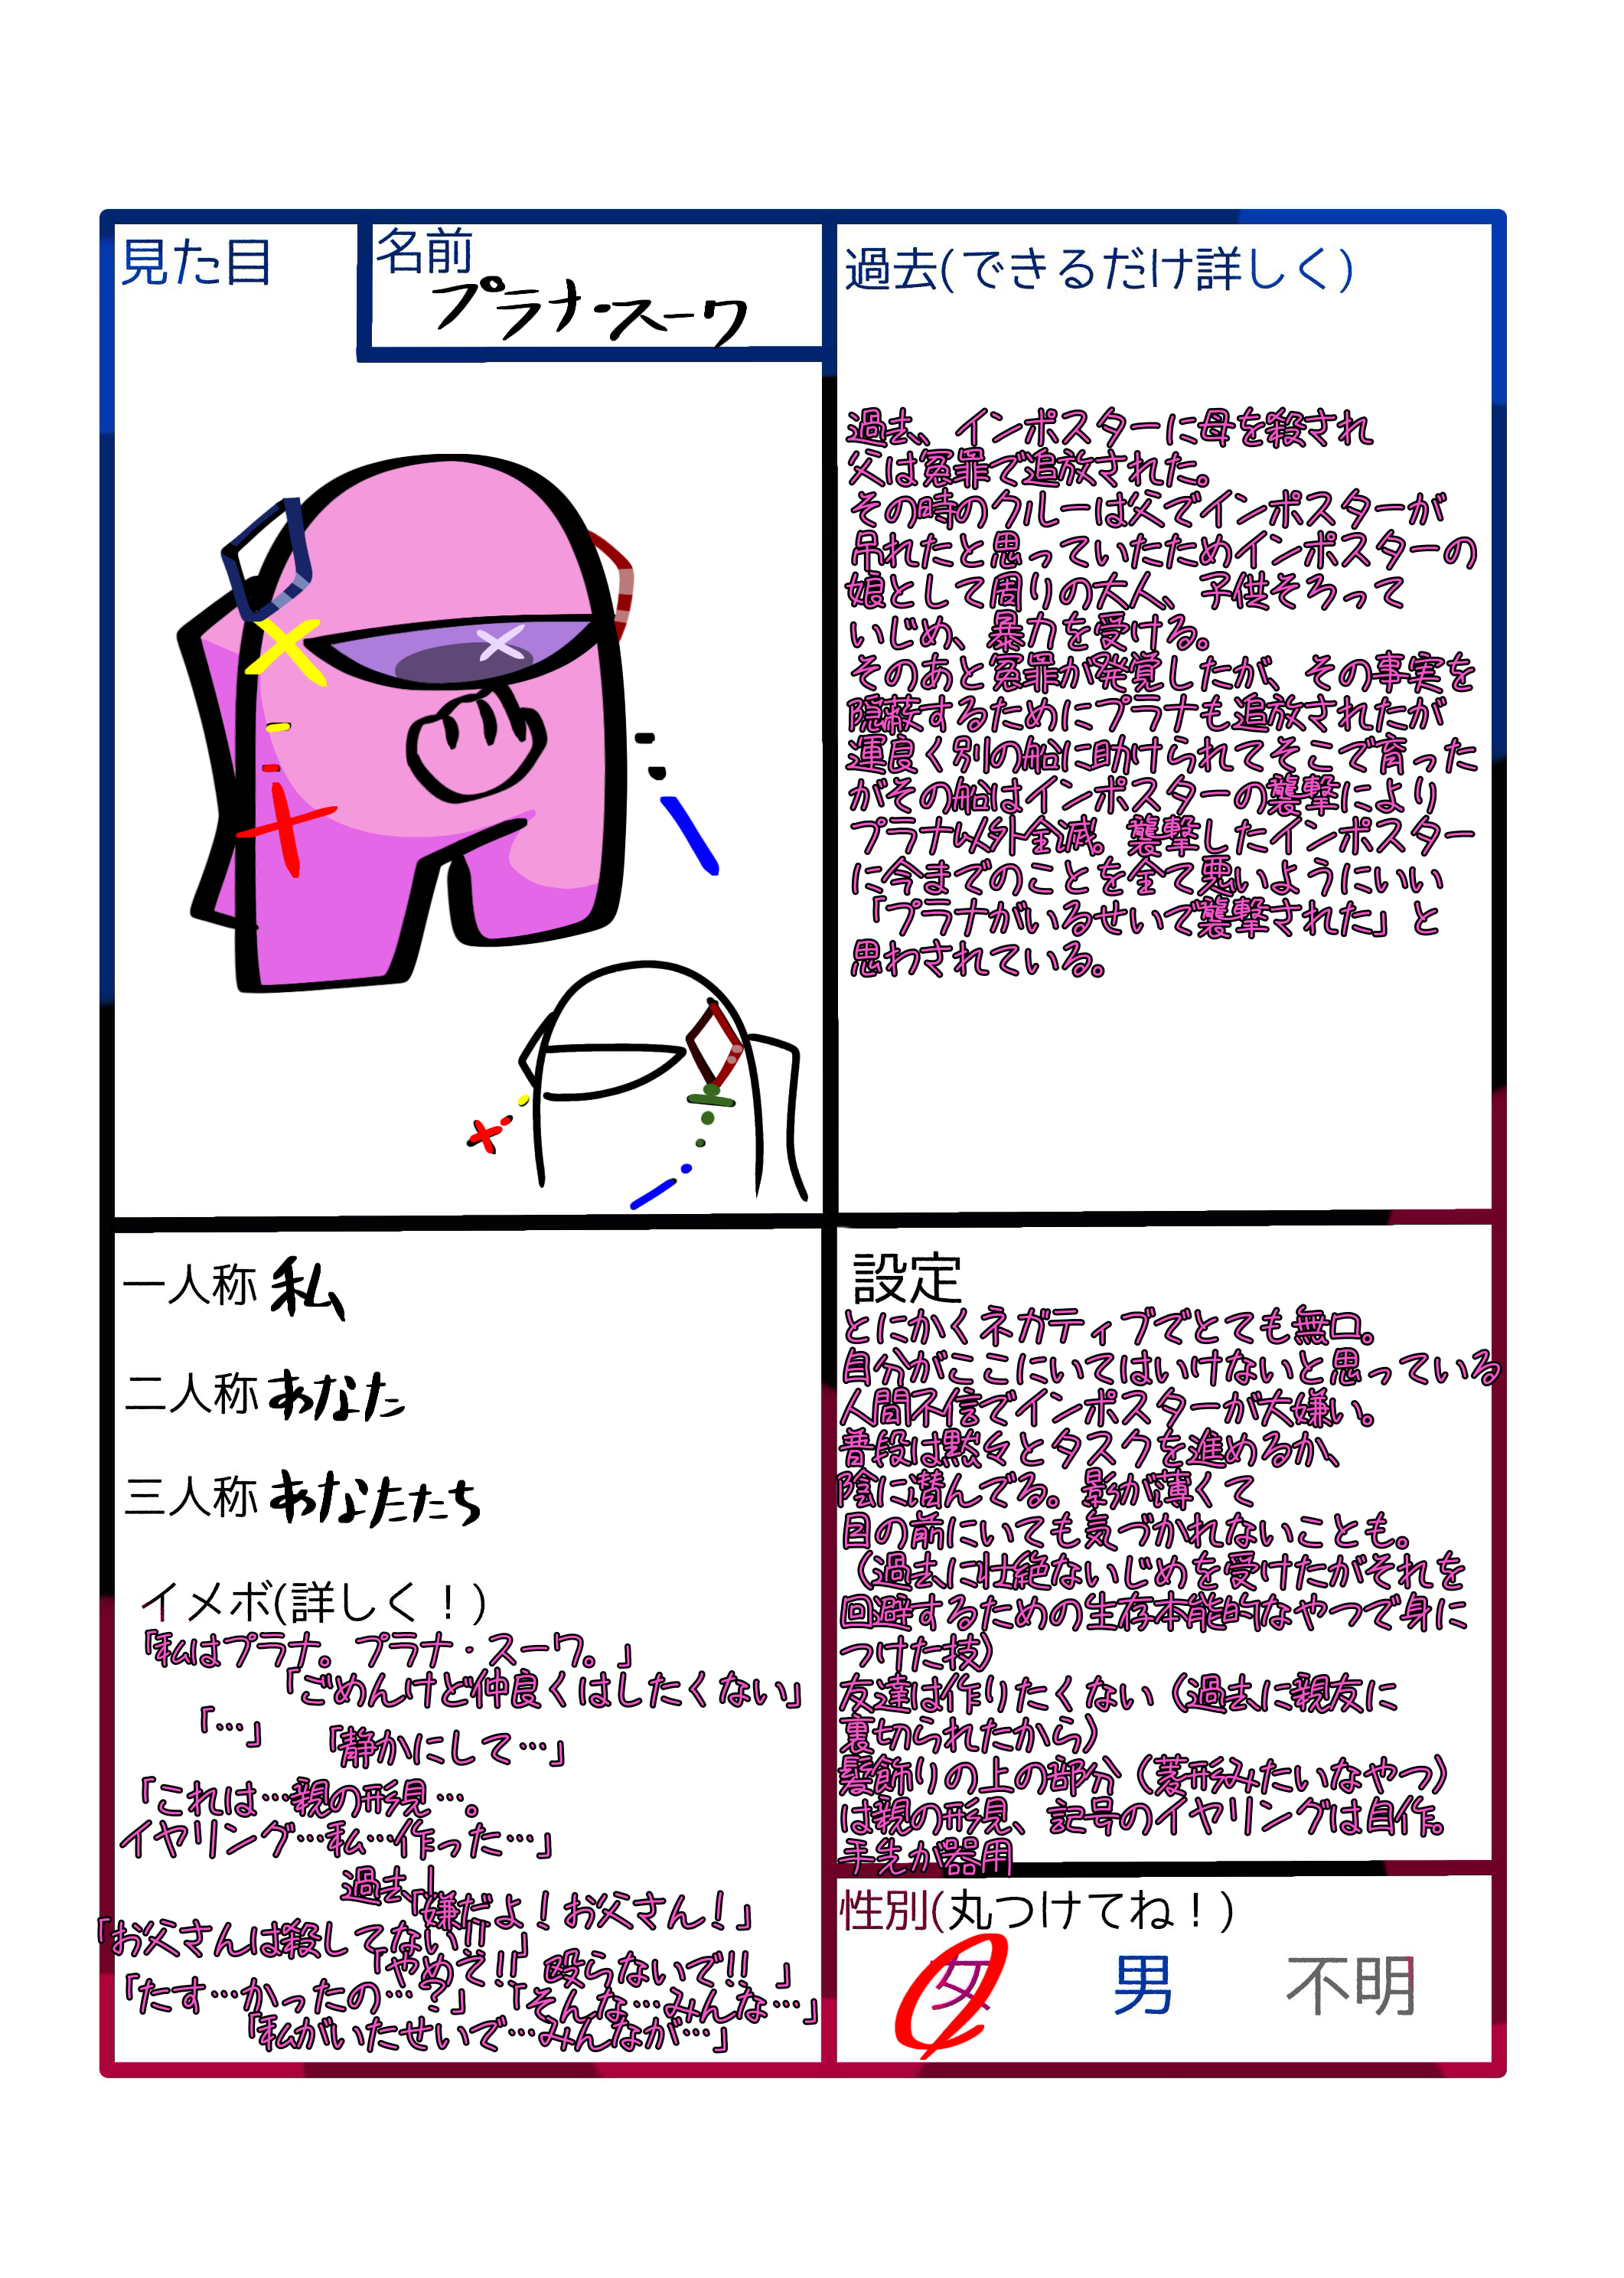 見た目
名前
プラナ・スーワ
過去(できるだけ詳しく)
過去、インポスターに母を殺され
父は冤罪で追放された。
その時のクルーは父でインポスターが
吊れたと思っていたためインポスターの
娘として周りの大人、子供そろって
いじめ、暴力を受ける。
そのあと冤罪が発覚したが、その事実を
隠蔽するためにプラナも追放されたが
運良く別の船に助けられてそこで育った
がその船はインポスターの襲撃により
プラナ以外全滅。襲撃したインポスター
に今までのことを全て悪いようにいい
「プラナがいるせいで襲撃された」と
思わされている。
一人称 私
二人称 あなた
三人称 あなたたち
イメボ(詳しく！)
「私はプラナ。プラナ・スーワ。」
「ごめんけど仲良くはしたくない」
「…」
「静かにして…」
「これは…親の形見…。
イヤリング…私…作った…」
過去↓
「嫌だよ！お父さん！」
「お父さんは殺してない!!」
「やめて!! 殴らないで!!」
「たす…かったの…？」
「そんな…みんな…」
「私がいたせいで…みんなが…」
設定
とにかくネガティブでとても無口。
自分がここにいてはいけないと思っている
人間不信でインポスターが大嫌い。
普段は黙々とタスクを進めるか、
陰に潜んでる。影が薄くて
目の前にいても気づかれないことも。
（過去に壮絶ないじめを受けたがそれを
回避するための生存本能的なやつで身に
つけた技）
友達は作りたくない（過去に親友に
裏切られたから）
髪飾りの上の部分（菱形みたいなやつ）
は親の形見、記号のイヤリングは自作。
手先が器用
性別(丸つけてね！)
女
男
不明